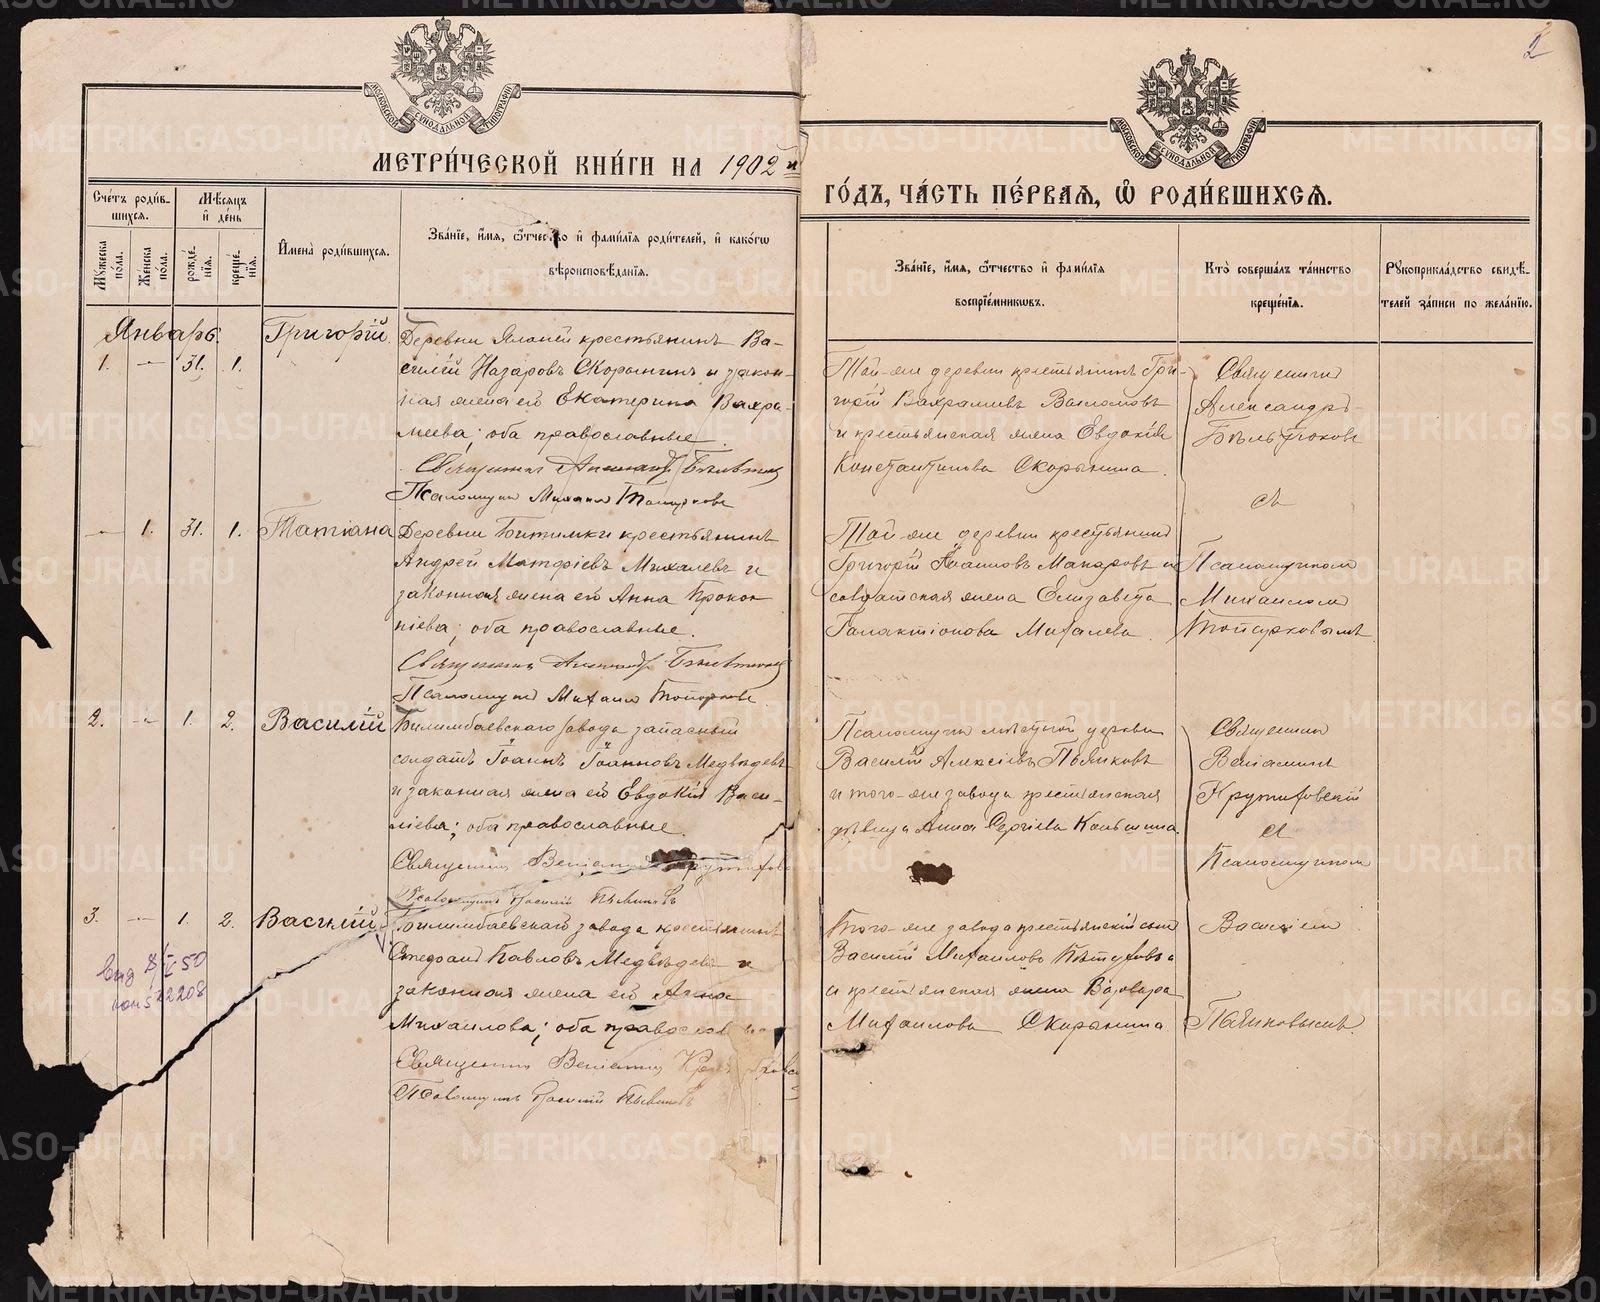 2
МОСКОВСКОЙ СѴНОДАЛЬНОЙ ТИПОГРАФІИ
МОСКОВСКОЙ СѴНОДАЛЬНОЙ ТИПОГРАФІИ
МЕТРИ́ЧЕСКОЙ КНИ́ГИ НА 1902й
ГО́ДЪ, ЧА́СТЬ ПЕ́РВАЯ, Ѽ РОДИ́ВШИХСЯ.
Сче́тъ роди́в-
шихся.
Мѣ́сяцъ
и҆ де́нь
Му́жеска
по́ла.
Же́нска
по́ла.
рожде́-
нія.
креще́-
нія.
И҆мена̀ роди́вшихся.
Зва́ніе, и҆́мя, ѻ҆́тчество и҆ фами́лія роди́телей, и҆ како́гѡ
вѣроисповѣ́данія.
Зва́ніе, и҆́мя, ѻ҆́тчество и҆ фами́лія
воспріе́мниковъ.
Кто̀ соверша́лъ та́инство
креще́нія.
Рукоприкла́дство свидѣ́-
телей за́писи по жела́нію.
Январь.
1. — 31. 1.
Григорій.
Деревни крестьянинъ Ва-
силій Назаровъ Скорынинъ и закон-
ная жена его Екатерина Вахра-
меева; оба православные.
Священникъ Александръ
Псаломщикъ Михаилъ Топорковъ
Той-же деревни крестьянинъ Гри-
горій Вахрамеевъ
и крестьянская жена Евдокія
Константинова Скорынина.
Священникъ
Александръ
съ
— 1. 31. 1.
Татіана
Деревни Битимки крестьянинъ
Андрей Матфіевъ Михалевъ и
законная жена его Анна Прокоп-
піева; оба православные.
Священникъ Александръ
Псаломщикъ Михаилъ Топорковъ
Той-же деревни крестьянинъ
Григорій Іоанновъ Макаровъ и
солдатская жена Елизавета
Галактіонова Михалева.
Псаломщикомъ
Михаиломъ
Топорковымъ.
2. — 1. 2.
Василій
Билимбаевскаго завода запасный
солдатъ Іоаннъ Іоанновъ Медвѣдевъ
и законная жена его Евдокія Васи-
ліева; оба православные.
Священникъ Веніаминъ
Псаломщикъ Василій Пьянковъ
Псаломщикъ мѣстной церкви
Василій Алексіевъ Пьянковъ
и того-же завода крестьянская
дѣвица Анна Сергіева
Священникъ
Веніаминъ
съ
Псаломщикомъ
3. — 1. 2.
Василій
Билимбаевскаго завода крестьянинъ
Стефанъ Павловъ Медвѣдевъ и
законная жена его Анна
Михаилова; оба православные
Священникъ Веніаминъ
Псаломщикъ Василій Пьянковъ
Того-же завода крестьянскій сынъ
Василій Михаиловъ Пѣтуховъ
и крестьянская жена Варвара
Михаилова Скорынина.
Василіемъ
Пьянковымъ.
22208
METRIKI.GASO-URAL.RU